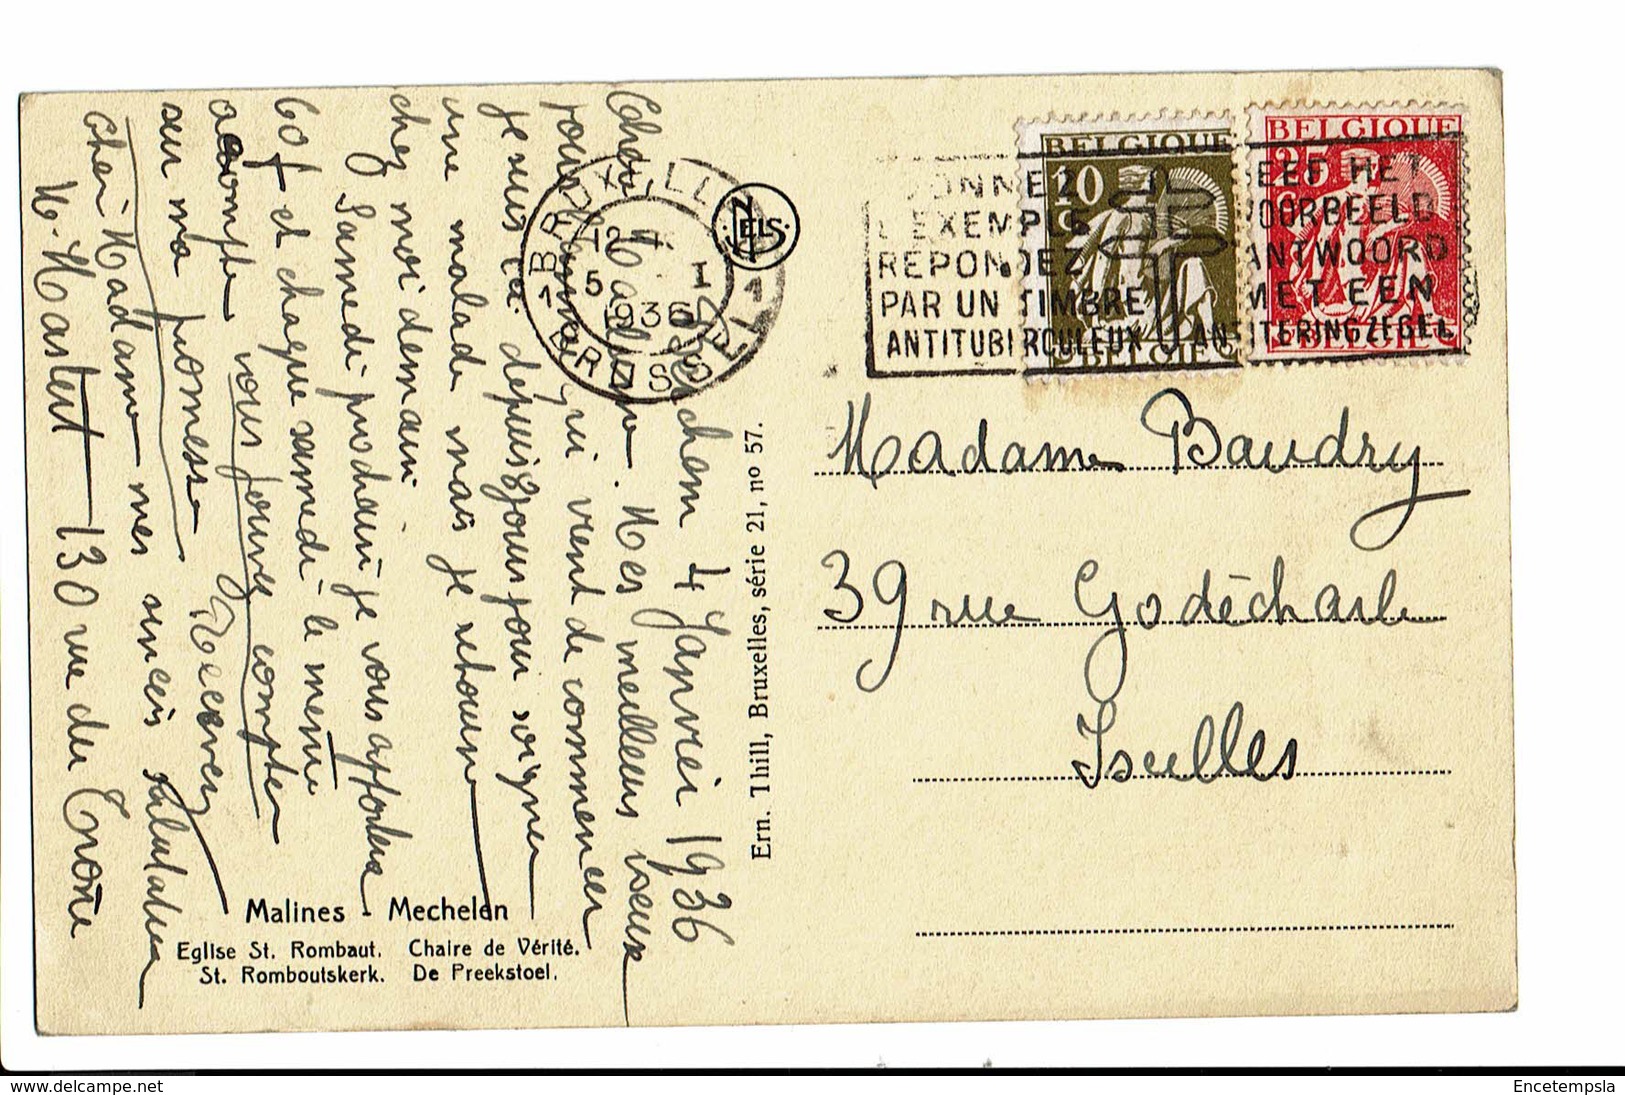 Mechem 4 Janvier 1936
Chère Madame. Mes meilleurs voeux
pour l'année qui vient de commencer
je suis ici depuis 8 jours pour soigner
une malade mais je retourne
chez moi demain
Samedi prochain je vous apporterai
60 f et chaque samedi le même
acompte vous pouvez compter
sur ma promesse Recevez
chère Madame mes sincères salutations
M. Mastert 130 rue du Trône
Malines - Mechelen
Eglise St. Rombaut. Chaire de Vérité.
St. Romboutskerk. De Preekstoel.
Ern. Thill, Bruxelles, série 21, no 57.
NELS
BRUXELLES
12
5 I
1936
BRUSSEL
BELGIQUE
10
BELGIE
BELGIQUE
25
DONNEZ
L'EXEMPLE
REPONDEZ
PAR UN TIMBRE
ANTITUBERCULEUX
GEEF HET
VOORBEELD
ANTWOORD
MET EEN
ANTITERINGZEGEL
Madame Baudry
39 rue Godécharle
Ixelles
www.delcampe.net
Encetempsla